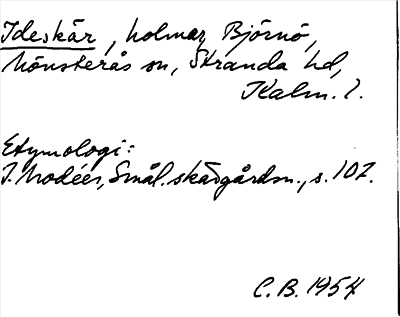 Ideskär, holmar, Björnö,
Mönsterås sn, Stranda hd,
Kalm. l.
Etymologi:
I. Modéer, Smål. skärgårdsn., s. 107.
C. B. 1954